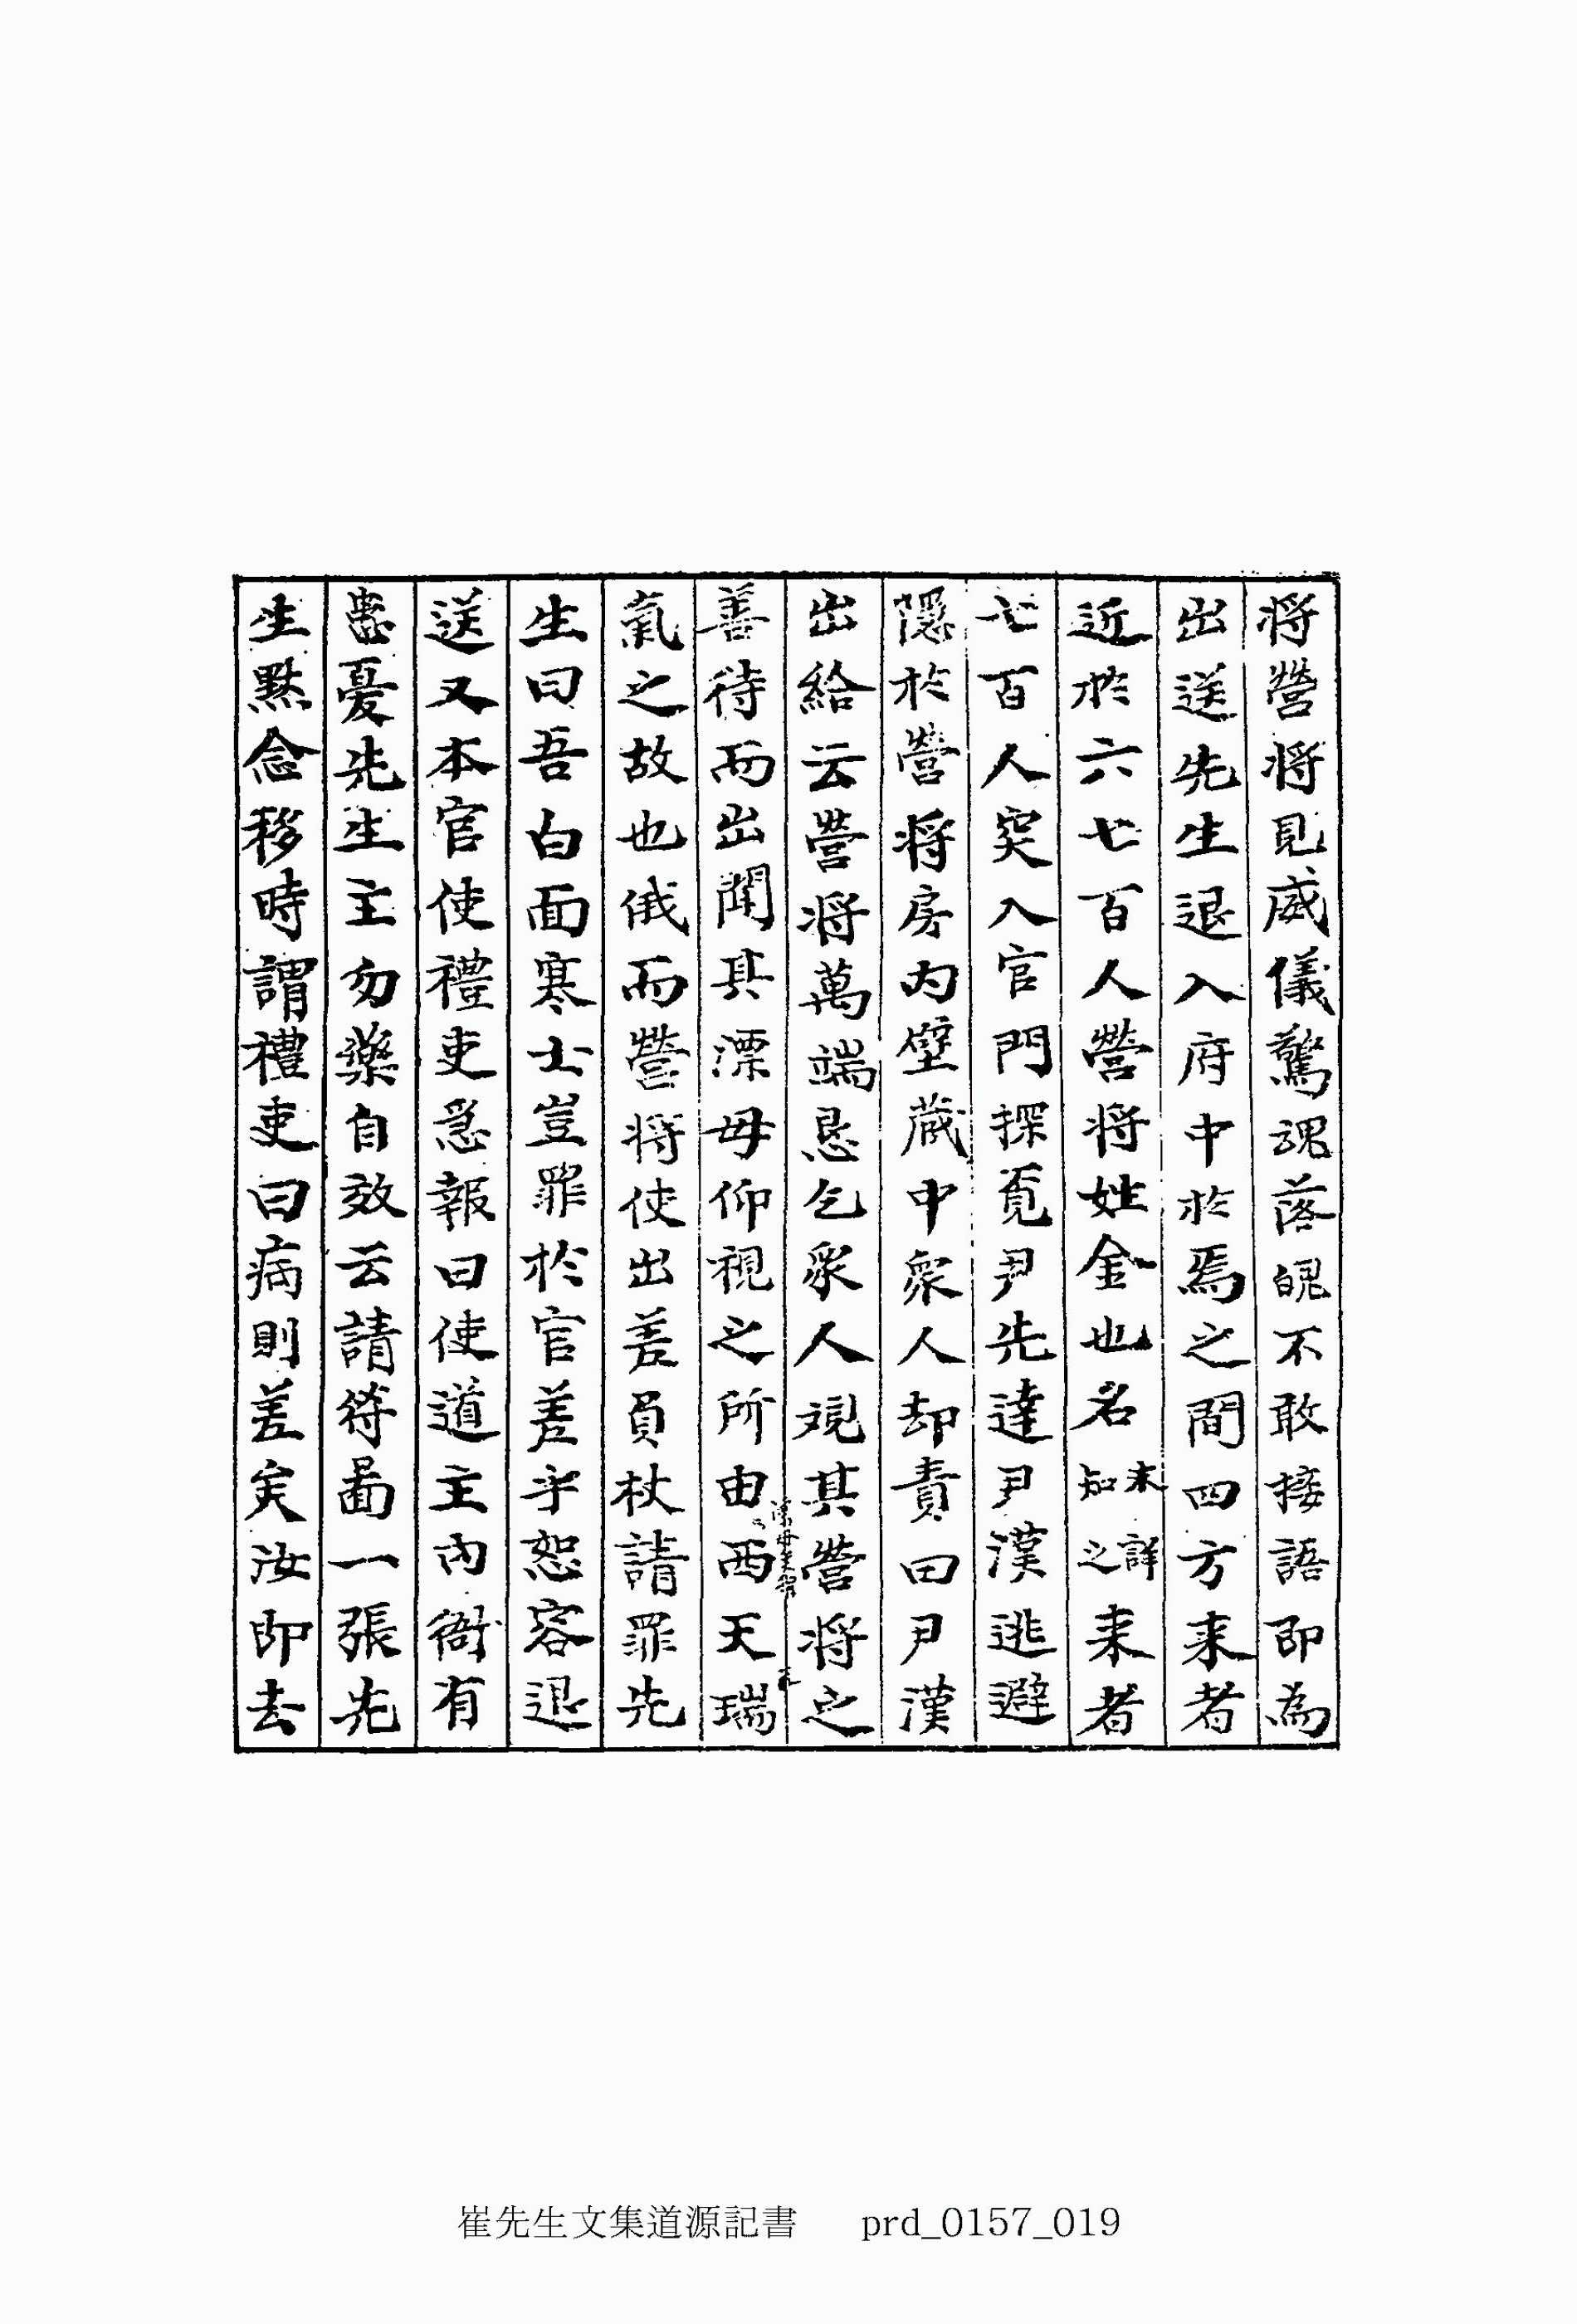 将營将見威儀驚魂落魄不敢接語即為
出送先生退入府中於焉之間四方来者
近於六七百人營将姓金也名未詳知之来者
七百人突入官門探覓尹先達尹漢逃避
隠於營将房内壁蔵中衆人却責曰尹漢
出給云營将萬端恳乞衆人覌其營将之
善待而出聞其漂母仰視之所由西天瑞
氣之故也俄而營将使出差員杖請罪先
生曰吾白面寒士豈罪於官差乎恕容退
送又本官使禮吏急報曰使道主內衙有
患憂先生主勿藥自效云請符啚一張先
生黙念移時謂禮吏曰病則差矣汝即去
崔先生文集道源記書 prd_0157_019